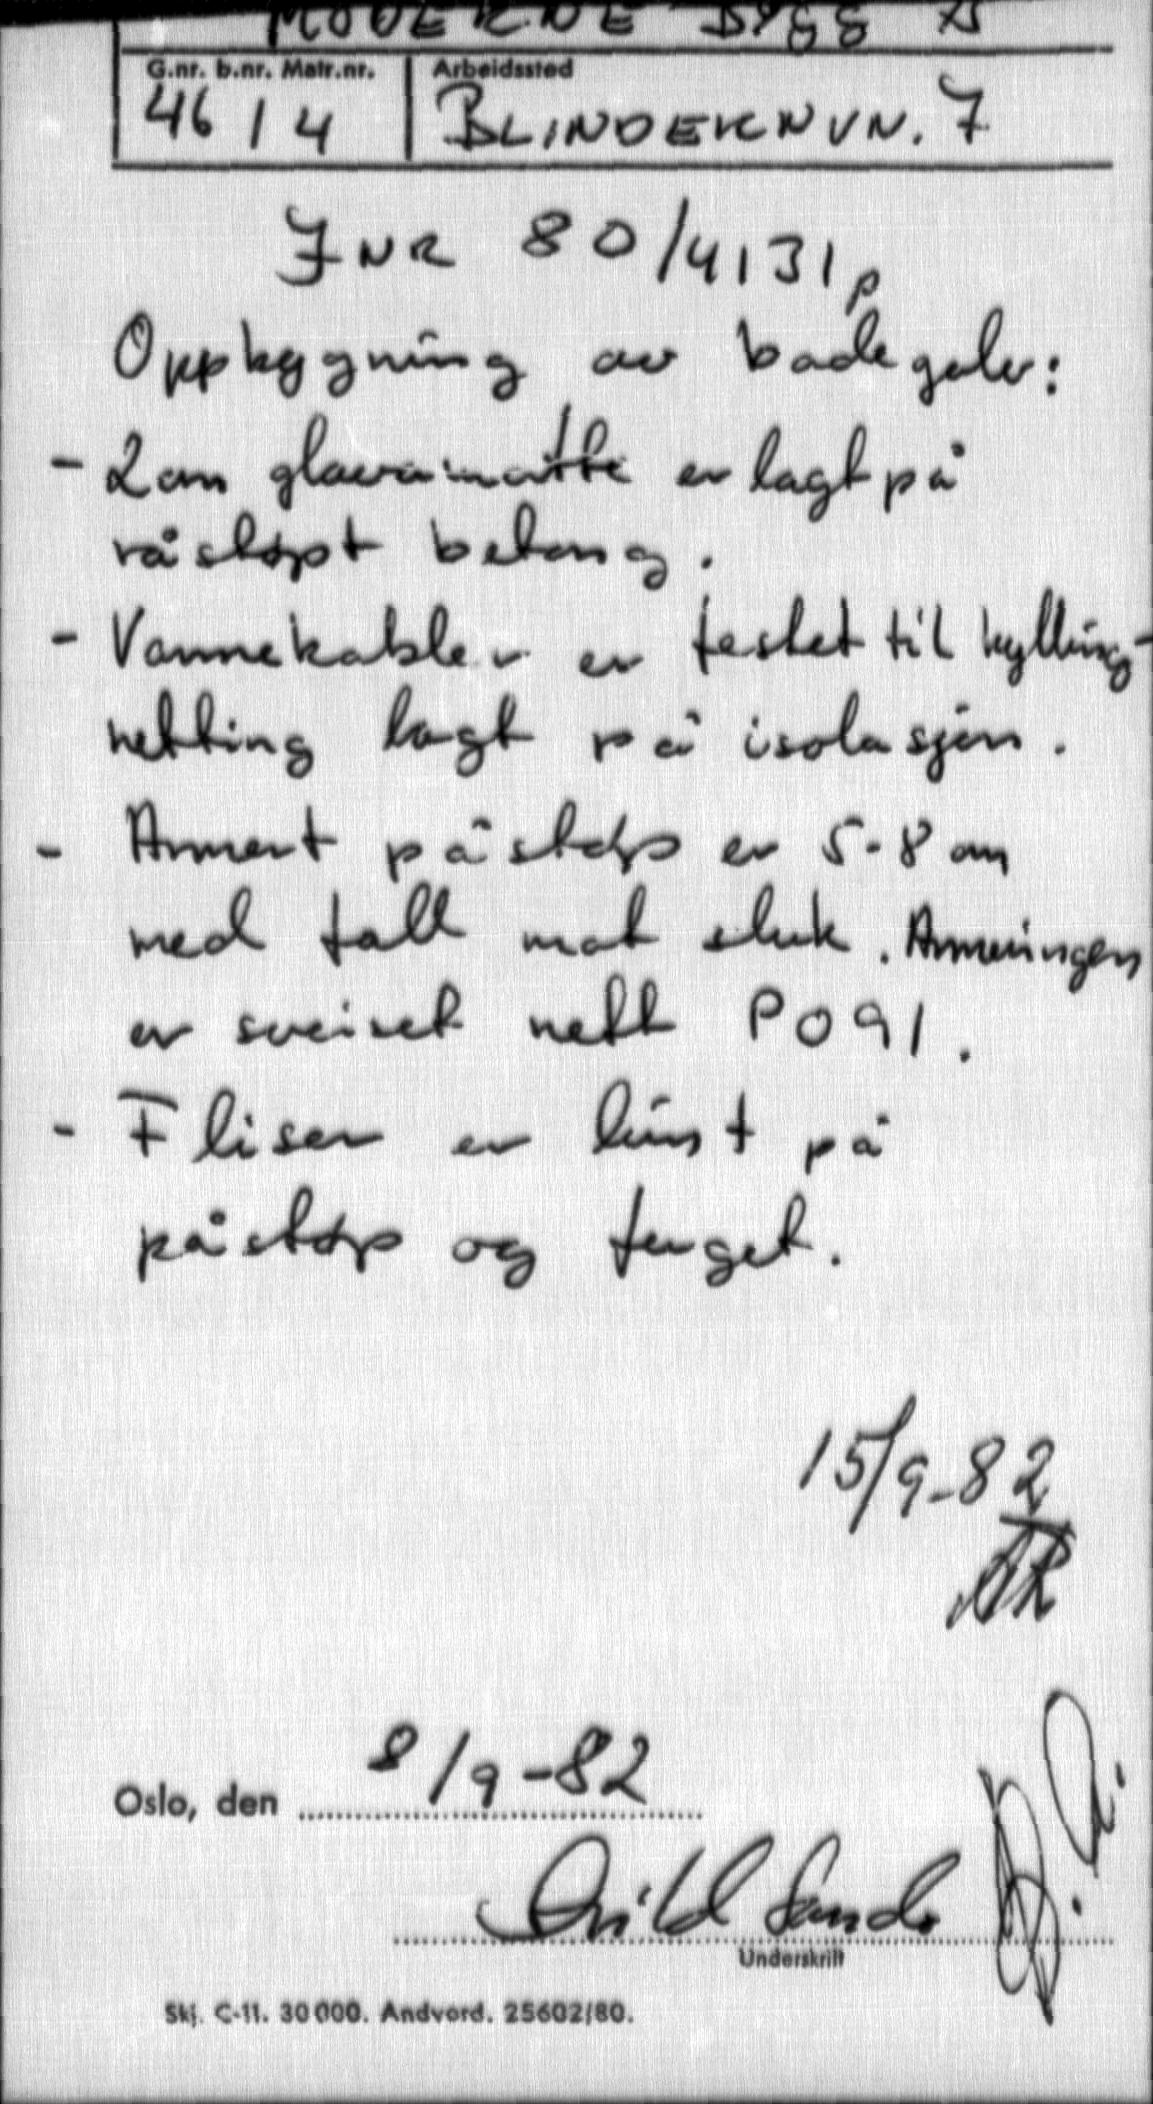 MODERNE BYGG AS
G.nr. b.nr. Matr.nr. Arbeidssted
46 / 4 BLINDERNVN. 7
JNR 80/4131 p
Oppbygning av badegolv:
- 2cm glavamatte er lagt på
råstøpt betong.
- Varmekabler er festet til kylling-
netting lagt på isolasjon.
- Armert påstøp er 5-8 cm
med fall mot sluk. Armeringen
er sveiset nett P091.
- Fliser er limt på
påstøp og fuget.
15/9-82
Oslo, den 8/9-82
Arild Sando
Underskrift
Skj. C-11. 30 000. Andvord. 25602/80.